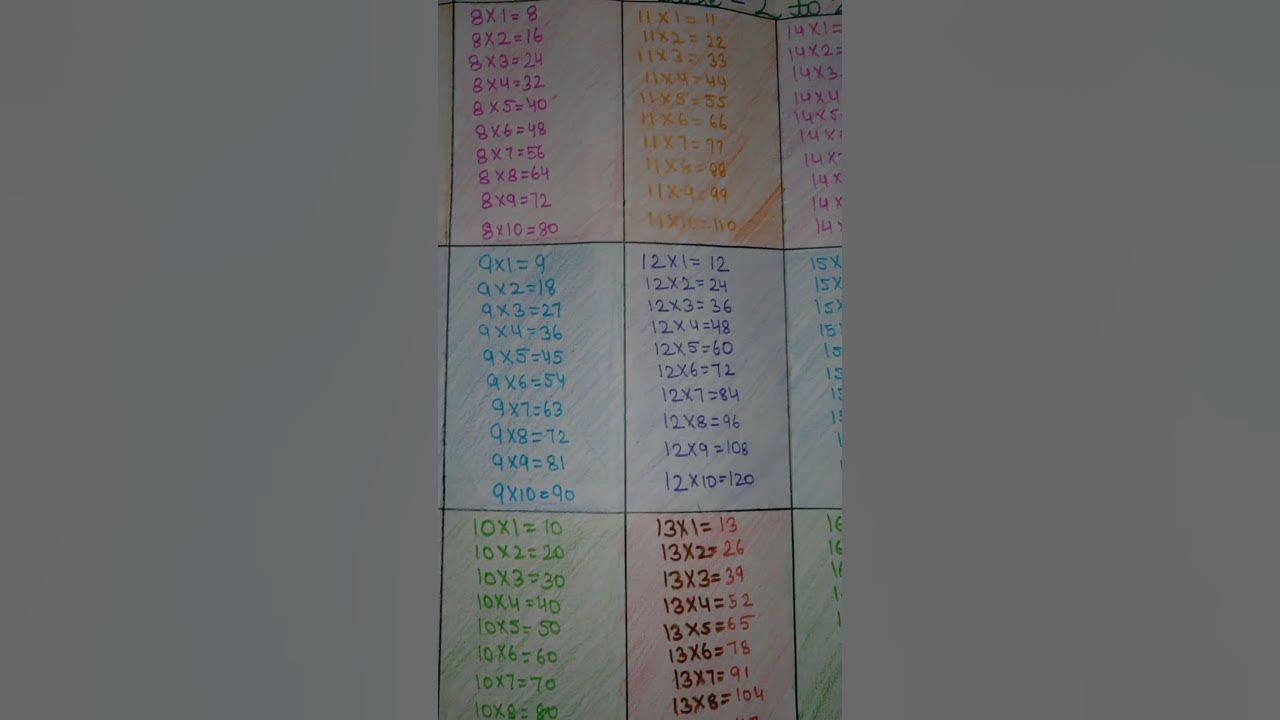 2 to 2
8X1=8
8X2=16
8X3=24
8X4=32
8X5=40
8X6=48
8X7=56
8X8=64
8X9=72
8X10=80
11X1=11
11X2=22
11X3=33
11X4=44
11X5=55
11X6=66
11X7=77
11X8=88
11X9=99
11X10=110
14X1=
14X2=
14X3
14X4
14X5
14X
14X
14X
14X
14
9X1=9
9X2=18
9X3=27
9X4=36
9X5=45
9X6=54
9X7=63
9X8=72
9X9=81
9X10=90
12X1=12
12X2=24
12X3=36
12X4=48
12X5=60
12X6=72
12X7=84
12X8=96
12X9=108
12X10=120
15X
15X
15X
15
15
15
15
15
10X1=10
10X2=20
10X3=30
10X4=40
10X5=50
10X6=60
10X7=70
10X8=80
13X1=13
13X2=26
13X3=39
13X4=52
13X5=65
13X6=78
13X7=91
13X8=104
16
16
16